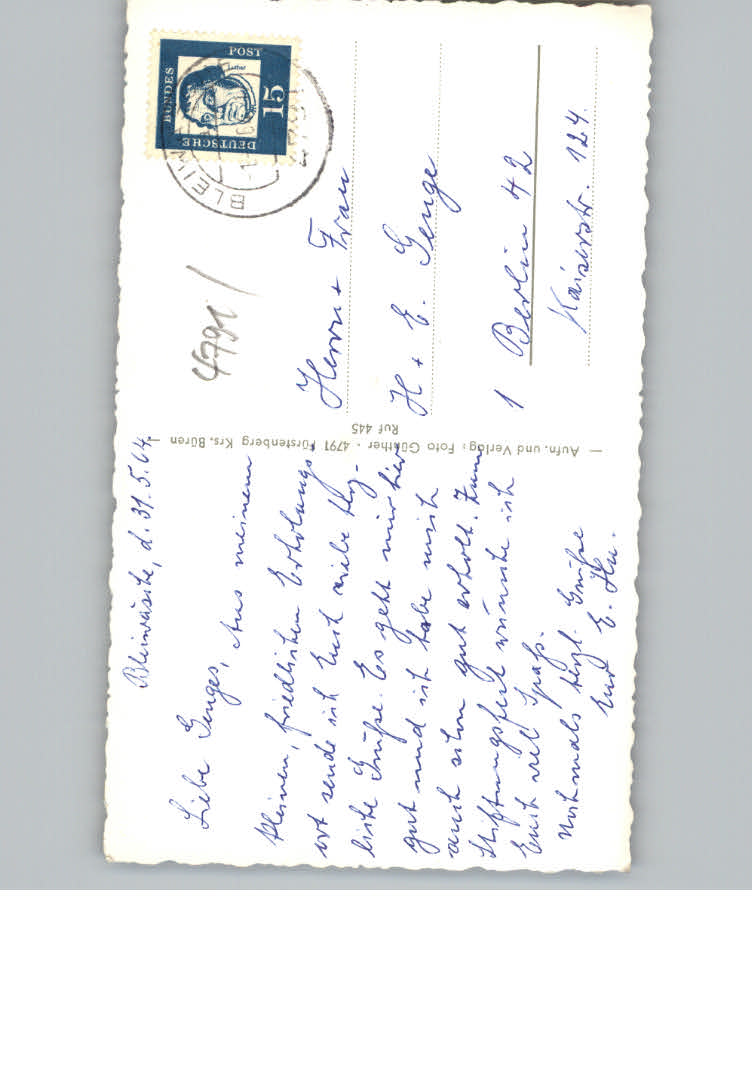 Bleiwäsche, d. 31.5.64.
Liebe Genges, Aus meinem
kleinen, friedlichen Erholungs
ort sende ich Euch viele herz-
liche Grüße. Es geht mir hier
gut und ich habe mich
auch schon gut erholt. Zum
Stiftungsfest wünsche ich
Euch viel Spaß.
Nochmals herzl. Grüße
Eur E. Hu.
Aufn. und Verlag: Foto Günther · 4791 Fürstenberg Krs. Büren
Ruf 445
DEUTSCHE
BUNDES
POST
15
Luther
BLEIW
4791
4791/
Herrn + Frau
H + E. Genge
1 Berlin 42
Kaiserstr. 124.